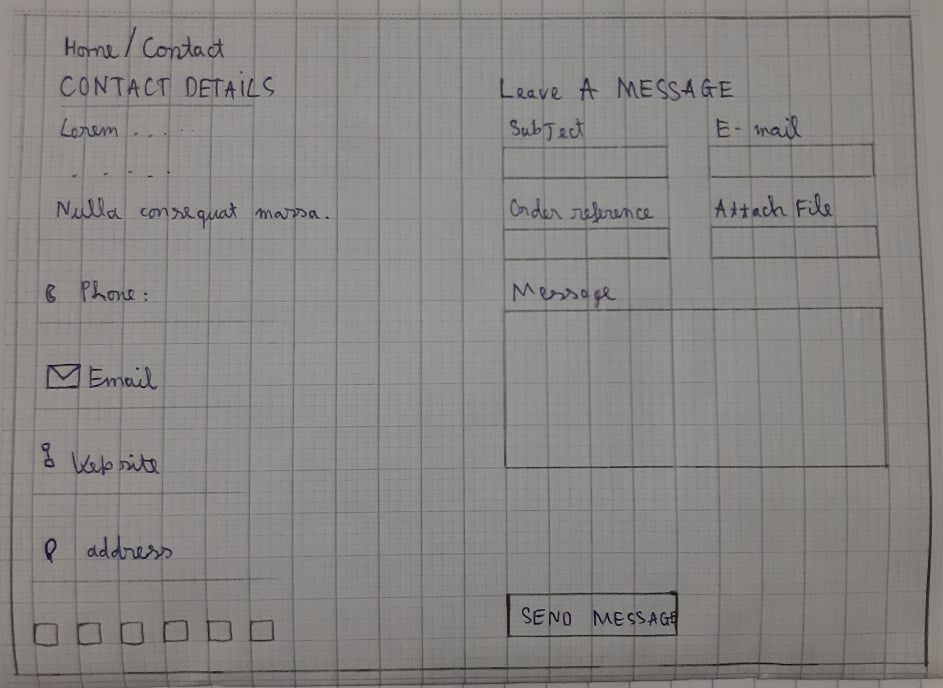 Home / Contact
CONTACT DETAILS
Lorem . . . . .
. . . . .
Nulla consequat massa.
Phone:
Email
Website
address
Leave A MESSAGE
SubJect
E-mail
Order reference
Attach File
Message
SEND MESSAGE